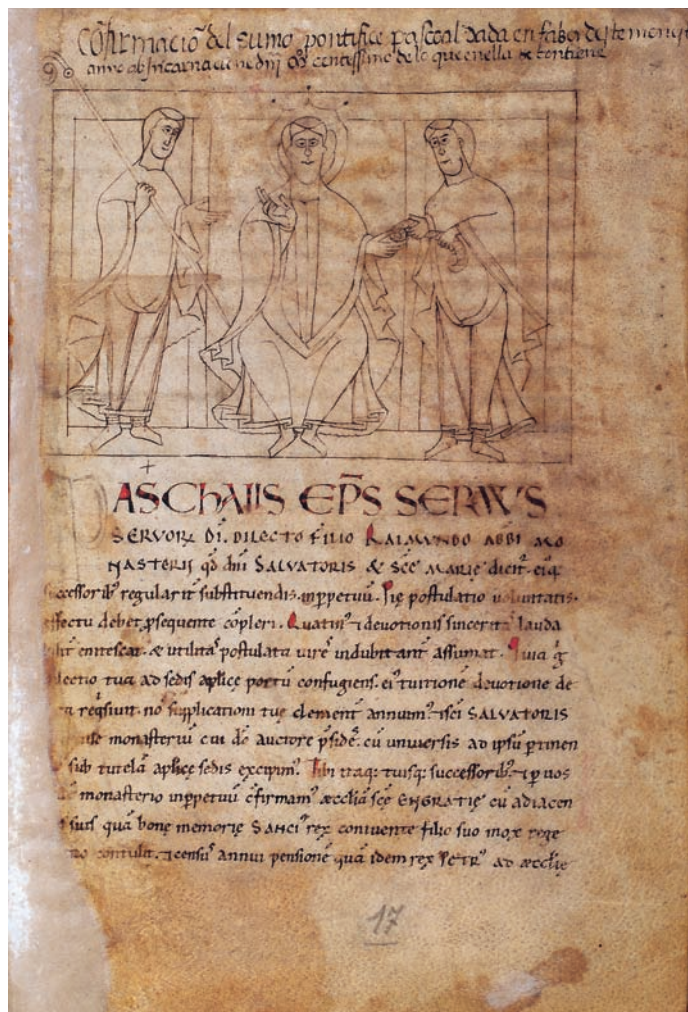 Cõfirmaciõ del sumo pontifice pascal dada en fabor deste
anno ab Incarnacione dnj centessimo de lo que en ella se contiene
PASChALIS EP̃S SERVVS
SERVORꝜ DI. DILECTO FILIO RAIMVNDO ABBI MO
NASTERII qd dnĩ SALVATORIS & SCE MARIE dicit. eiq;
successoribꝰ regularit̃ substituendis. inppetuũ. Pie postulatio voluntatis.
effectu debet psequente cõpleri. Quatinꝰ ⁊ devotionis sincerit̃ lauda
enitescat. & utilitaˢ postulata vire indubitant̃ assumat. Quia g̃
lectio tua ad sedis aplice portũ confugiens. eiꝰ tuitionẽ devotione de
reqsiuit. nos supplicationi tue clement̃ annuimꝰ. ⁊ sci SALVATORIS
monasteriũ cui dõ auctore psides. cũ universis ad ipsũ ptinen
sub tutelã aplice sedis excipimꝰ. Tibi itaq; tuisq; successoribꝰ. ⁊ p vos
monasterio inppetuũ cfirmamꝰ æccliã sce ENGRATIE cũ adiacen
suis quã bone memorie SANCIꝰ rex conivente filio suo mox rege
contulit. ⁊ censũ annui pensionẽ quã idem rex PETRꝰ ad æcclie
17